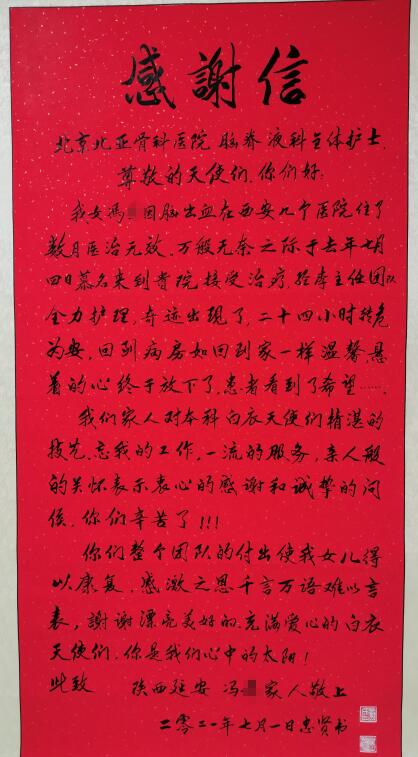 感謝信
北京北亚骨科医院 脑脊液科全体护士
尊敬的天使们.你们好:
我女冯 因脑出血在西安几个医院住了
数月医治无效.万般无奈之际于去年七月
四日慕名来到贵院接受治疗,经李主任团队
全力护理,奇迹出现了,二十四小时转危
为安,回到病房如回到家一样温馨.悬
着的心终于放下了,患者看到了希望……
我们家人对本科白衣天使们精湛的
技艺.忘我的工作,一流的服务,亲人般
的关怀表示衷心的感谢和诚挚的问
候.你们辛苦了!!!
你们整个团队的付出使我女儿得
以康复.感激之恩千言万语难以言
表,謝谢漂亮美好的.充满爱心的白衣
天使们.你是我们心中的太阳!
此致 陕西延安 冯 家人敬上
二零二一年七月一日忠贤书